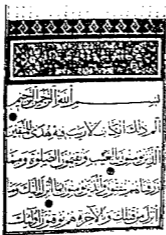 بسم الله الرحمن الرحيم
الم ذلك الكتاب لا ريب فيه هدى للمتقين
الذين يؤمنون بالغيب ويقيمون الصلوة ومما
رزقناهم ينفقون والذين يؤمنون بما أنزل إليك وما
أنزل من قبلك وبالآخرة هم يوقنون أولئك